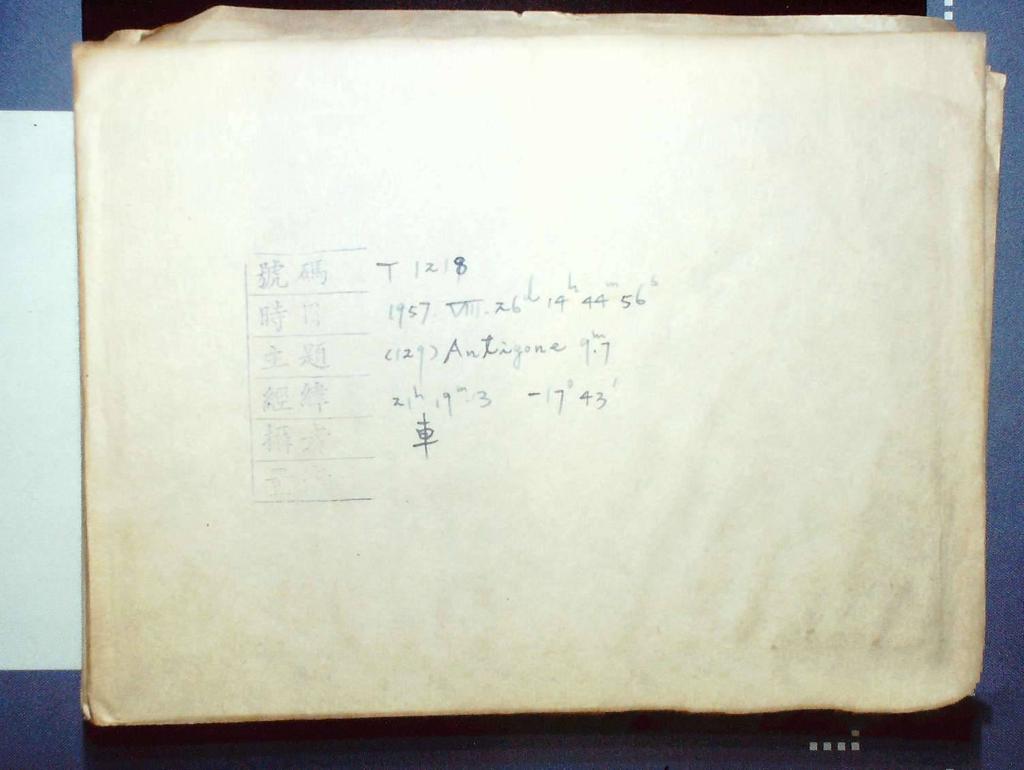 號碼 T 1218
時日 1957. VIII. 26ᵈ 14ʰ 44ᵐ 56ˢ
主題 (129) Antigone 9ᵐ.7
經緯 21ʰ 19ᵐ.3 -17° 43′
攝者 車